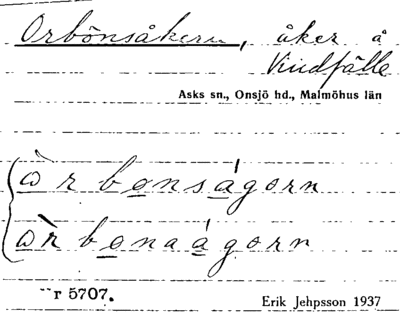 Orbönsåkern, åker å
Vindfälle
Asks sn., Onsjö hd., Malmöhus län
ò r bonságorn
òr bonaágorn
r 5707.
Erik Jehpsson 1937